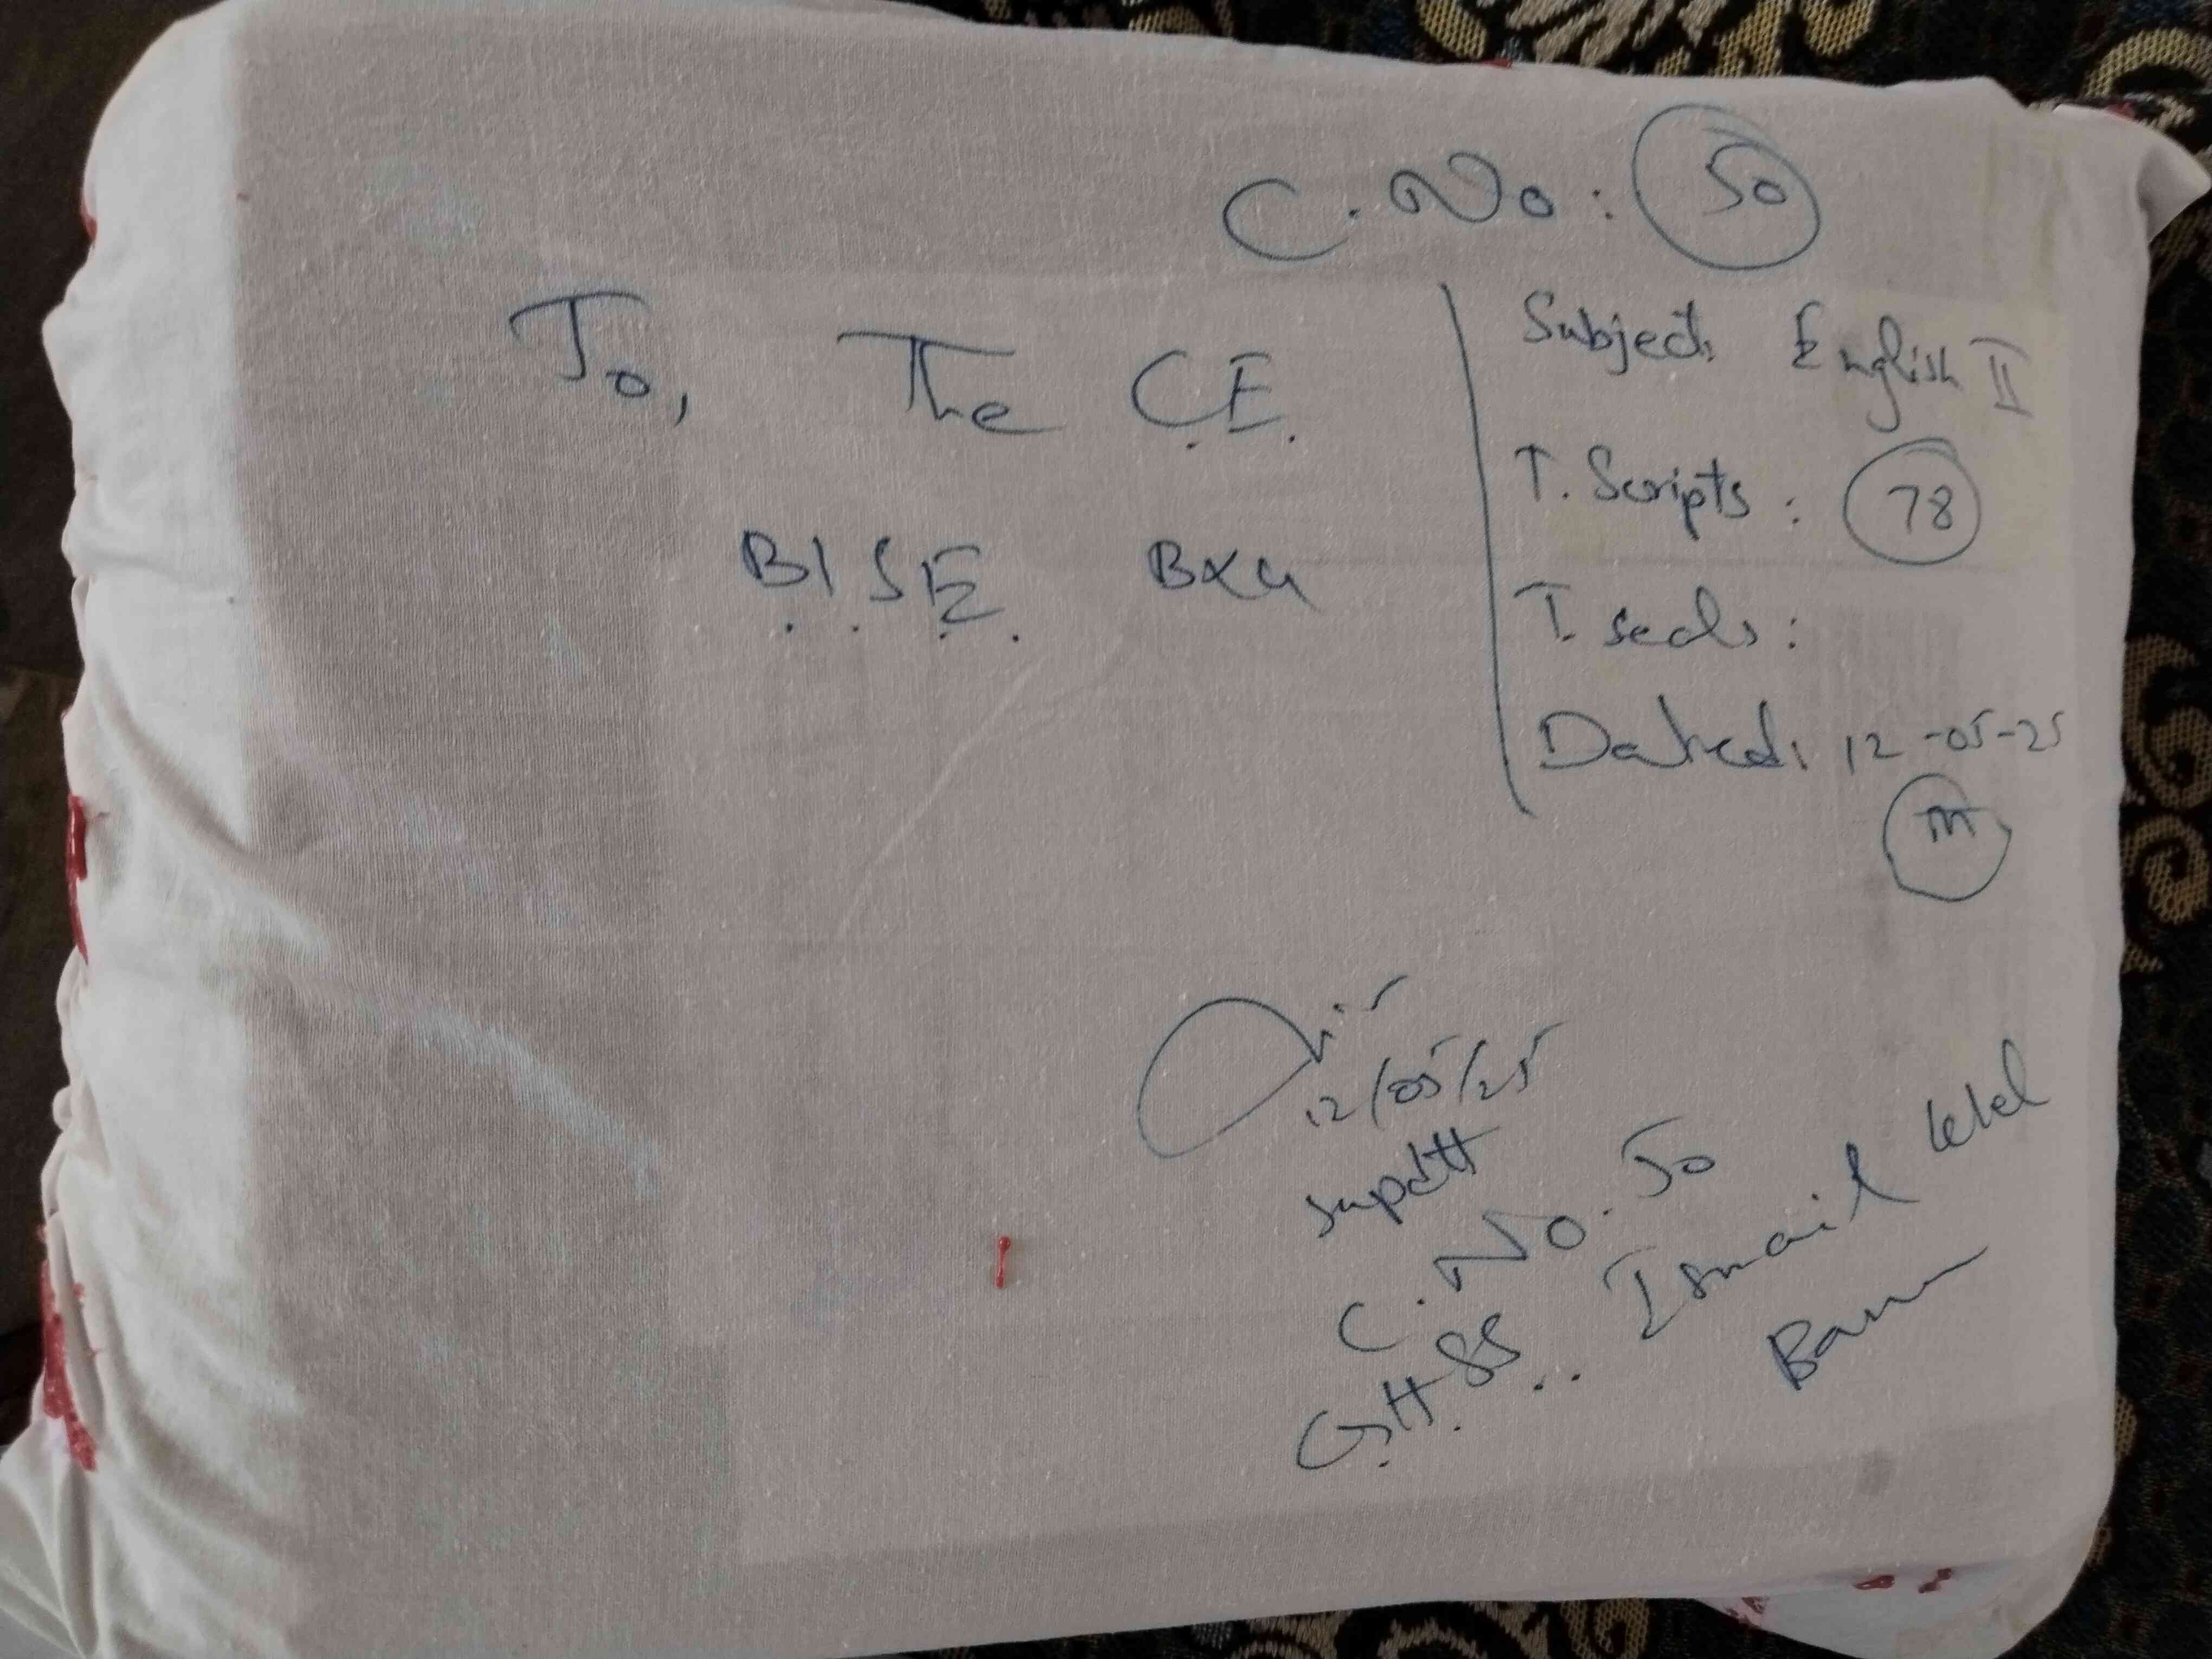 C. No : 50
To, The C.E.
B.I.S.E. BXU
Subject: English II
T. Scripts : 78
T. seals :
Dated: 12-05-25
M
12/05/25
Supdtt
C. No. 50
G.H.SS.. Ismail